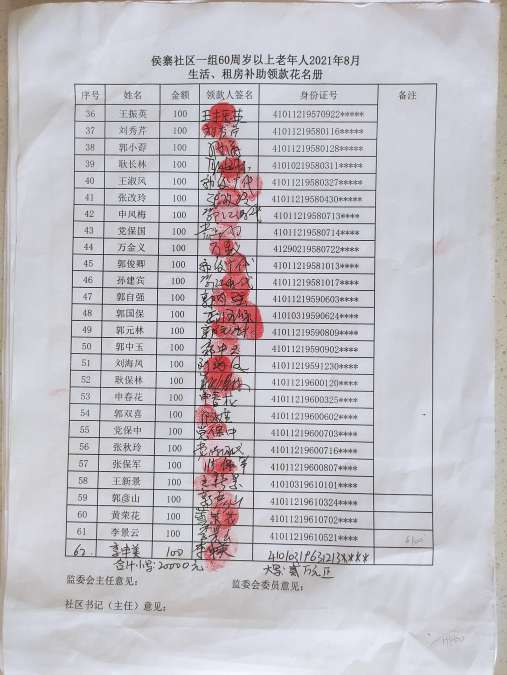 侯寨社区一组60周岁以上老年人2021年8月
生活、租房补助领款花名册
序号 姓名 金额 领款人签名 身份证号 备注
36 王振英 100 王振英 41011219570922*****
37 刘秀芹 100 刘秀芹 41011219580116*****
38 郭小荶 100 41011219580128*****
39 耿长林 100 41010219580311*****
40 王淑风 100 41011219580327*****
41 张改玲 100 张改玲 41011219580430*****
42 申凤梅 100 41011219580713****
43 党保国 100 41011219580714****
44 万金义 100 41290219580722****
45 郭俊卿 100 41011219581013****
46 孙建宾 100 41011219581017****
47 郭自强 100 41011219590603****
48 郭国保 100 41010319590624****
49 郭元林 100 郭元林 41011219590809****
50 郭中玉 100 郭中玉 41011219590902****
51 刘海凤 100 刘海凤 41011219591230****
52 耿保林 100 耿保林 41011219600120****
53 申春花 100 申春花 41011219600325****
54 郭双喜 100 41011219600602****
55 党保中 100 党保中 41011219600703****
56 张秋玲 100 41011219600716****
57 张保军 100 张保军 41011219600807****
58 王新景 100 王新景 41010319610101****
59 郭彦山 100 郭彦山 41011219610324****
60 黄荣花 100 黄荣花 41011219610702****
61 李景云 100 李景云 41011219610521****
62. 李申美 100 41010319631213****
合计小写:20000元 大写:贰万元正
监委会主任意见: 监委会委员意见:
社区书记(主任)意见: